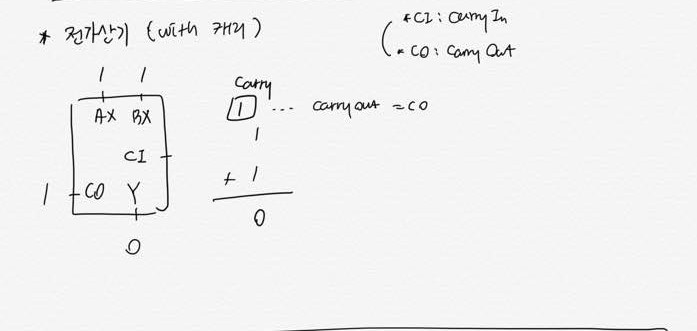 * 전가산기 (with 캐리)
* CI : Carry In
* CO : Carry Out
1 1
AX BX
CI
1 CO Y
0
Carry
1 ... carry out = CO
1
+ 1
0